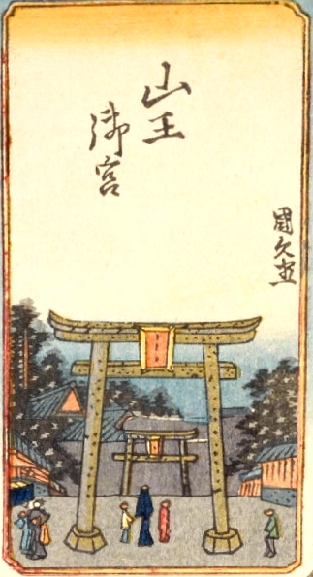 山王
御宮
國久画